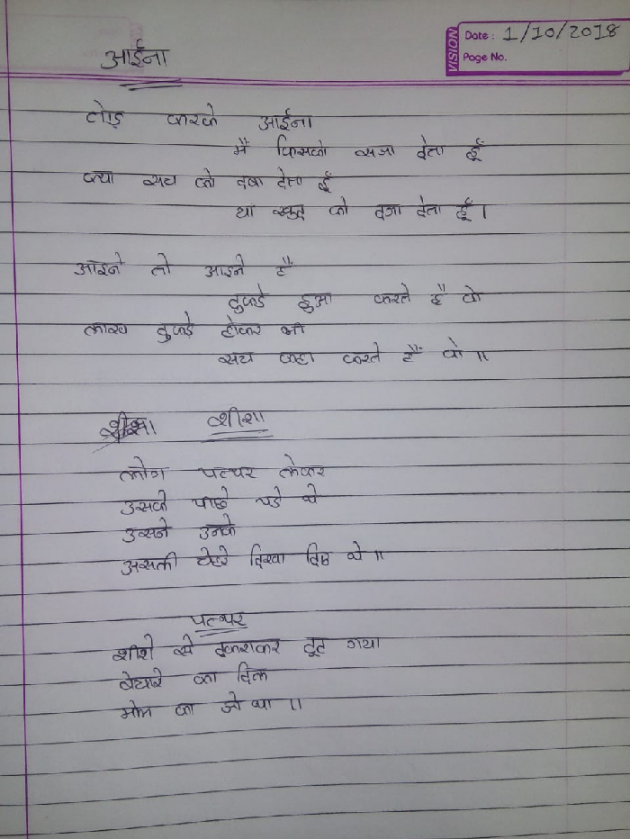 VISION
Date : 1/10/2018
Page No.
आईना
तोड़ करके आईना
मैं किसको सजा देता हूँ
क्या सच को दबा देता हूँ
या खुद को दगा देता हूँ।
आइने तो आइने हैं
टुकडे हुआ करते है वो
लाख टुकडे होकर भी
सच कहा करते हैं वो॥
शीशा
लोग पत्थर लेकर
उसके पीछे पडे थे
उसने उनके
असली चेहरे दिखा दिए थे॥
पत्थर
शीशे से टकराकर टूट गया
बेचारे का दिल
मोम का जो था॥